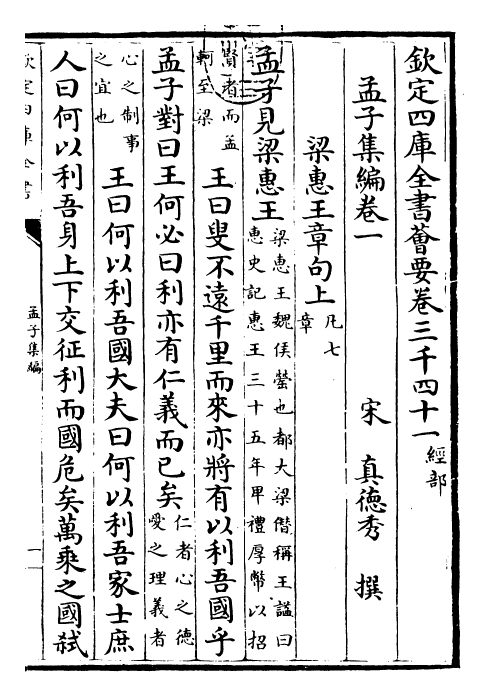 欽定四庫全書薈要卷三千四十一 經部
孟子集編卷一
宋 真德秀 撰
梁惠王章句上 凡七章
孟子見梁惠王 梁惠王魏侯罃也都大梁僭稱王諡曰惠史記惠王三十五年卑禮厚幣以招
賢者而孟軻至梁 王曰叟不遠千里而來亦將有以利吾國乎
孟子對曰王何必曰利亦有仁義而已矣 仁者心之德愛之理義者
心之制事之宜也 王曰何以利吾國大夫曰何以利吾家士庶
人曰何以利吾身上下交征利而國危矣萬乘之國弑
欽定四庫全書
孟子集編
一